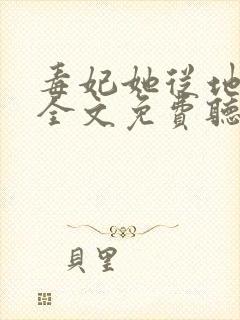 毒妃她從地
全文免費聽
貝里